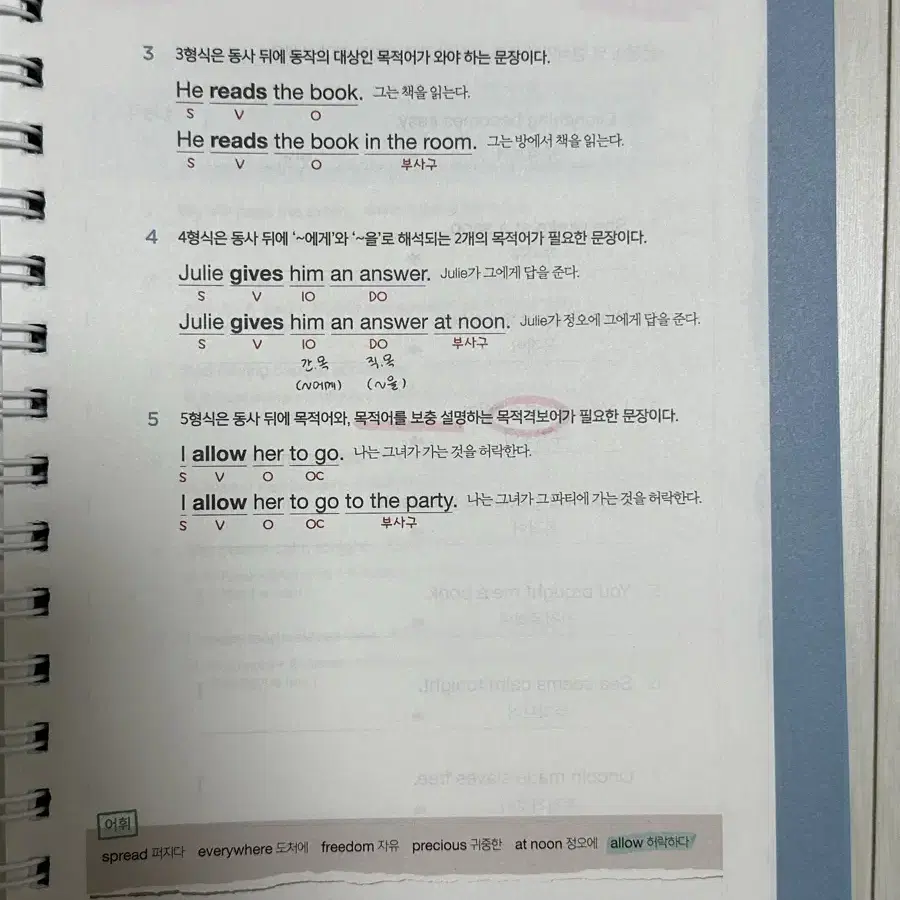 3 3형식은 동사 뒤에 동작의 대상인 목적어가 와야 하는 문장이다.
He reads the book. 그는 책을 읽는다.
S V O
He reads the book in the room. 그는 방에서 책을 읽는다.
S V O 부사구
4 4형식은 동사 뒤에 ‘~에게’와 ‘~을’로 해석되는 2개의 목적어가 필요한 문장이다.
Julie gives him an answer. Julie가 그에게 답을 준다.
S V IO DO
Julie gives him an answer at noon. Julie가 정오에 그에게 답을 준다.
S V IO DO 부사구
간.목 직.목
(~에게) (~을)
5 5형식은 동사 뒤에 목적어와, 목적어를 보충 설명하는 목적격보어가 필요한 문장이다.
I allow her to go. 나는 그녀가 가는 것을 허락한다.
S V O OC
I allow her to go to the party. 나는 그녀가 그 파티에 가는 것을 허락한다.
S V O OC 부사구
어휘
spread 퍼지다 everywhere 도처에 freedom 자유 precious 귀중한 at noon 정오에 allow 허락하다